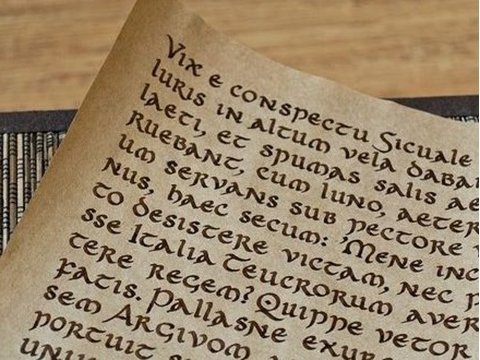 Vix e conspectu Sicuale
luris in altum vela daba
laeti, et spumas salis ae
ruebant, cum luno, aeter
um servans sub pectore v
nus, haec secum: 'Mene inc
to desistere victam, nec p
sse Italia Teucrorum aver
tere regem? Quippe vetor
fatis. Pallasne exur
sem Argivom
portuit